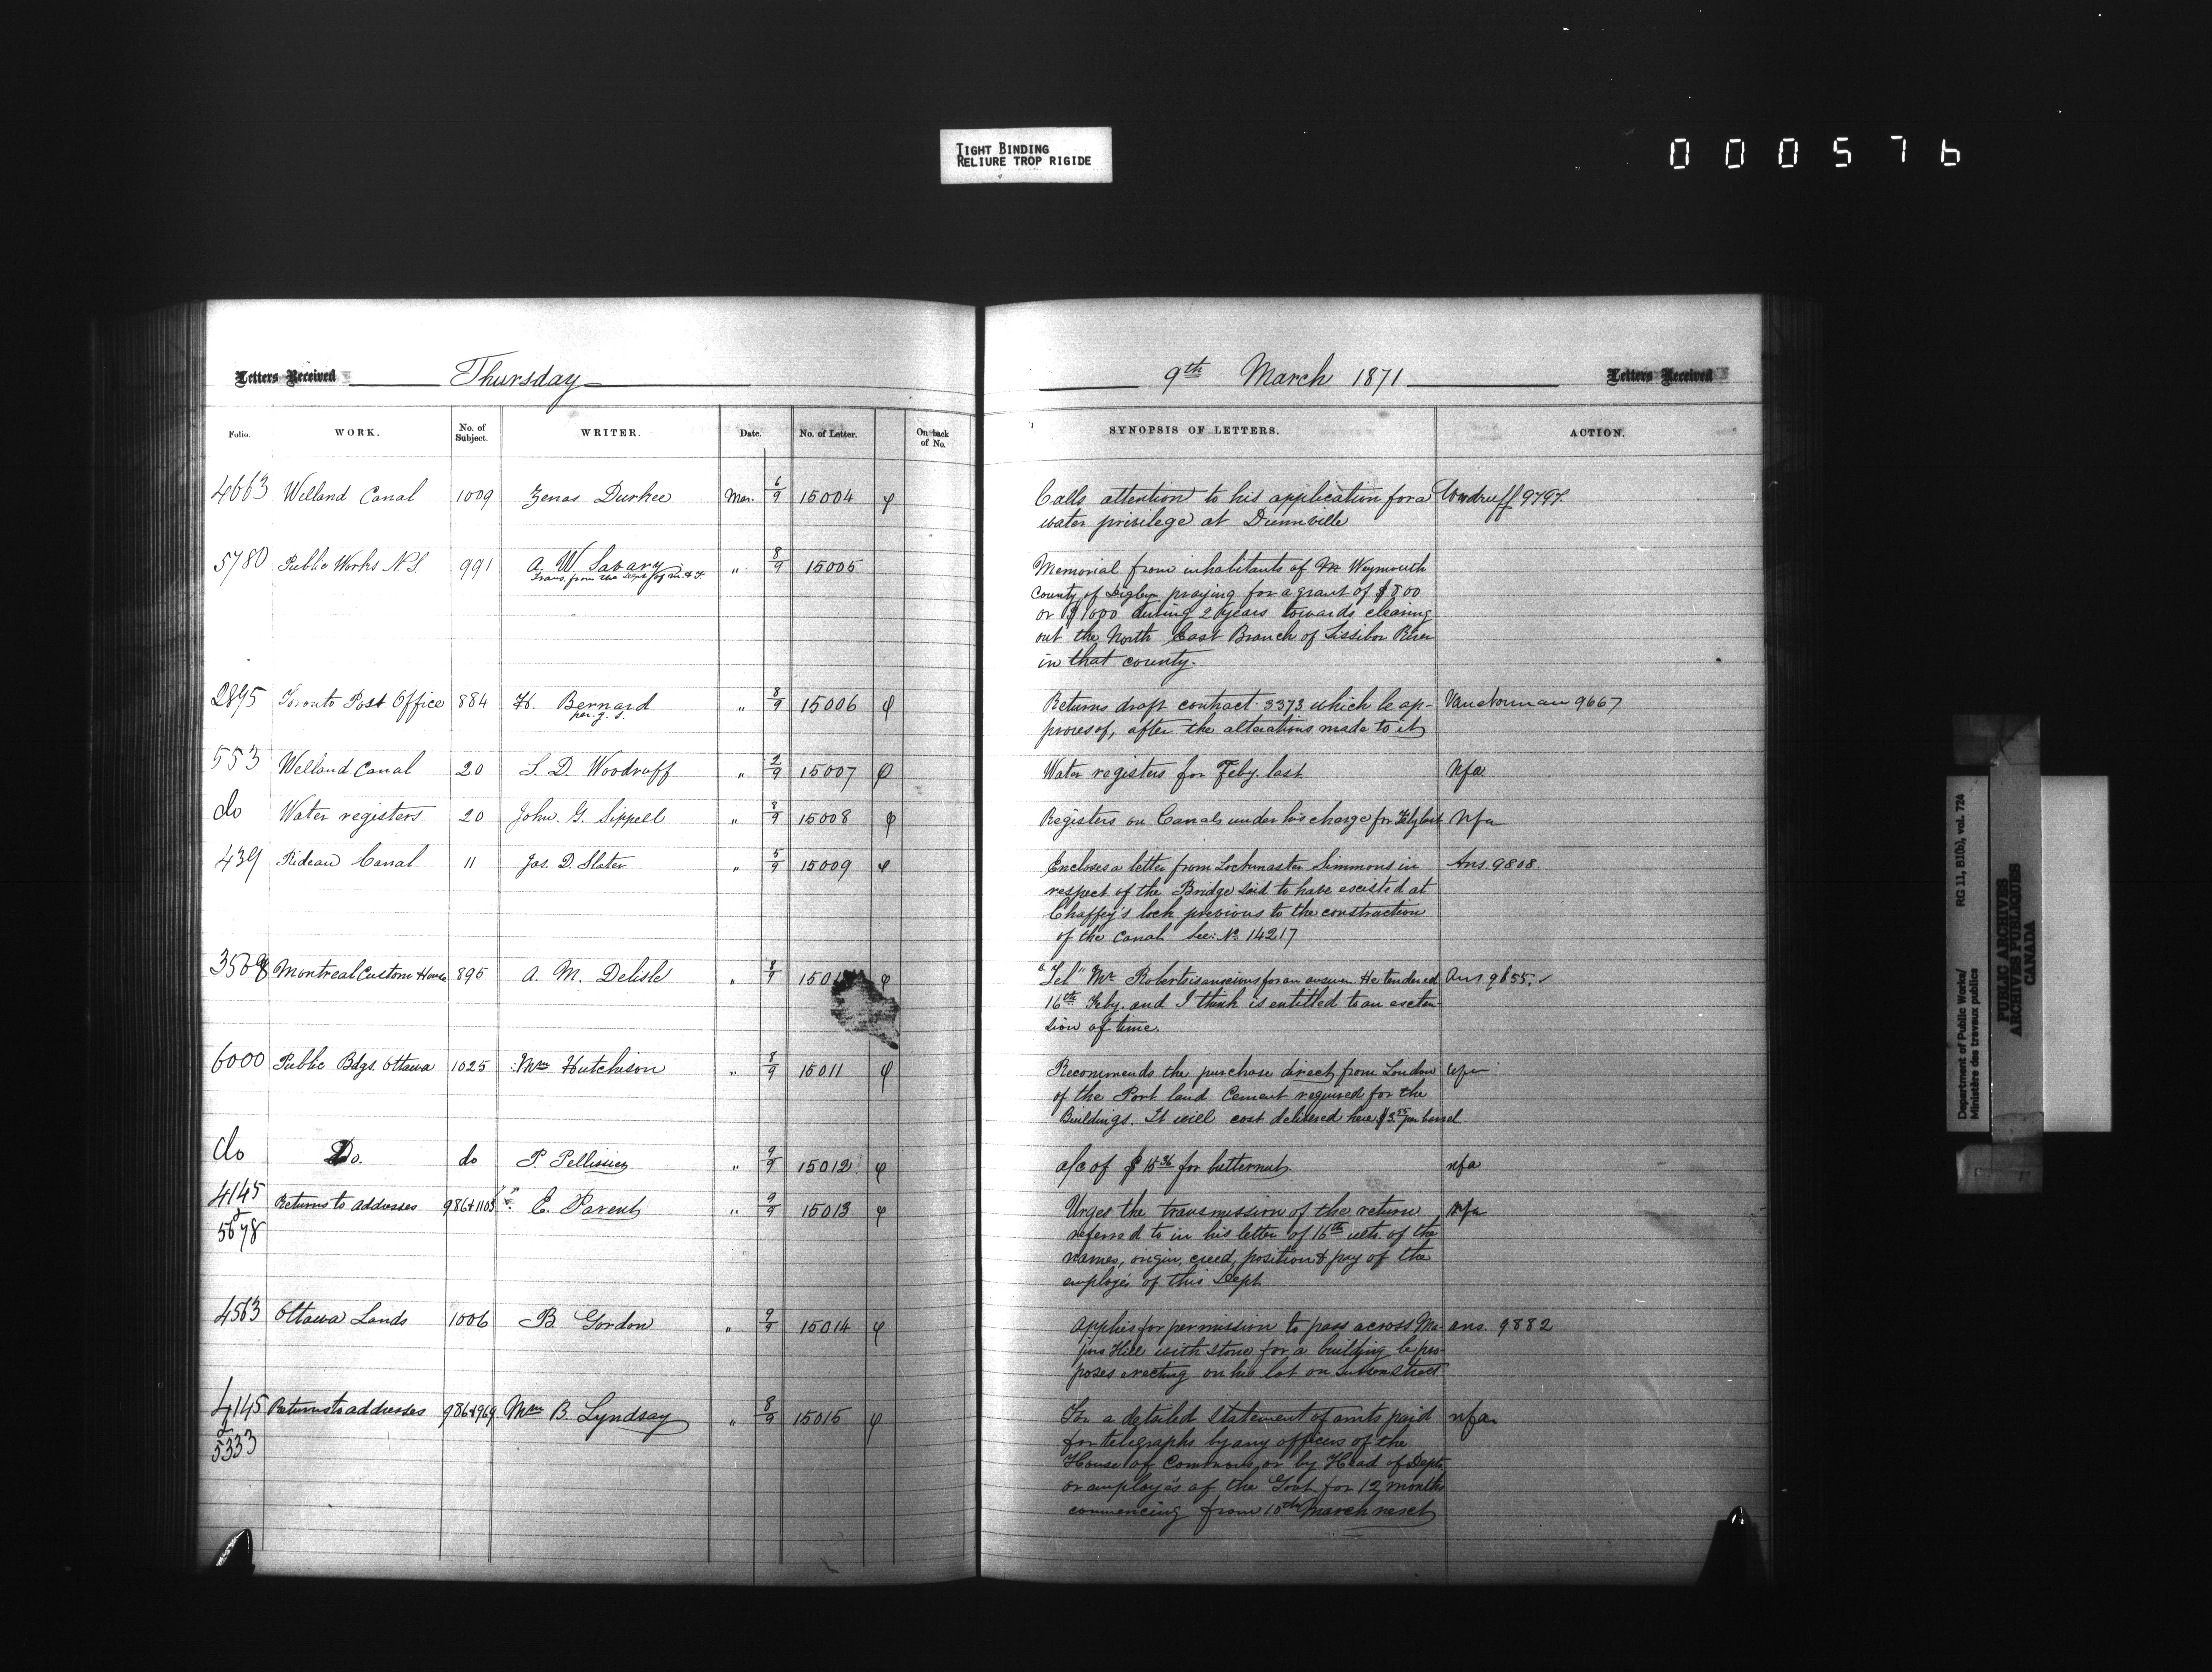 TIGHT BINDING
RELIURE TROP RIGIDE
0 0 0 5 7 6
Letters Received Thursday
9th March 1871 Letters Received
Folio. WORK. No. of Subject. WRITER. Date. No. of Letter. On back of No. SYNOPSIS OF LETTERS. ACTION.
4663 Welland Canal 1009 Zenas Durkee Mar. 6/9 15004 φ Calls attention to his application for a Woodruff 9797
water privilege at Dunnville
5780 Public Works N.S. 991 A. W. Savary " 8/9 15005 Memorial from inhabitants of Weymouth
Trans. from the Dept of M. & F.
County of Digby praying for a grant of $800
or $1000 during 2 years towards clearing
out the North East Branch of Sissiboo River
in that county.
2895 Toronto Post Office 884 H. Bernard " 8/9 15006 φ Returns draft contract 3373 which he ap- Vannorman 9667
per. g. s.
proves of, after the alterations made to it
553 Welland Canal 20 S. D. Woodruff " 2/9 15007 φ Water registers for Feby. last nfa
do Water registers 20 John. G. Sippell " 8/9 15008 φ Registers on Canals under his charge for Feby last nfa
439 Rideau Canal 11 Jas. D. Slater " 5/9 15009 φ Encloses a letter from Lockmaster Simmons in Ans. 9808.
respect of the Bridge said to have existed at
Chaffey's lock previous to the construction
of the Canal See: No 14217
Montreal Custom House 895 A. M. Delisle " 8/9 φ "Tel" Mr. Roberts is anxious for an answer He tendered Ans 9655.
16th Feby. and I think is entitled to an exten-
sion of time.
6000 Public Bdgs. Ottawa 1025 Wm Hutchison " 8/9 15011 φ Recommends the purchase direct from London
of the Port land Cement required for the
Buildings. It will cost delivered here per barrel
do Do. do P. Pellissier " 9/9 15012 φ a/c of $15.36 for butternut nfa
4145 Returns to addresses 986&1103 E. Parent " 9/9 15013 φ Urges the transmission of the return nfa
&
5678 referred to in his letter of 16th ulto. of the
names, origin, creed, position & pay of the
employés of this Dept
4563 Ottawa Lands 1006 B. Gordon " 9/9 15014 φ Applies for permission to pass across Ma- ans. 9882
jors Hill with stone for a building he pro-
poses erecting on his lot on Sussex Street
4145 Returns to addresses 986&969 Wm B. Lyndsay " 8/9 15015 φ For a detailed statement of amts paid nfa
&
5333 for telegraphs by any officers of the
House of Commons, or by Head of Depts
or employés of the Govt. for 12 months
commencing from 10th March next
Department of Public Works/ RG 11, B1(b), vol. 724
Ministère des travaux publics
PUBLIC ARCHIVES
ARCHIVES PUBLIQUES
CANADA